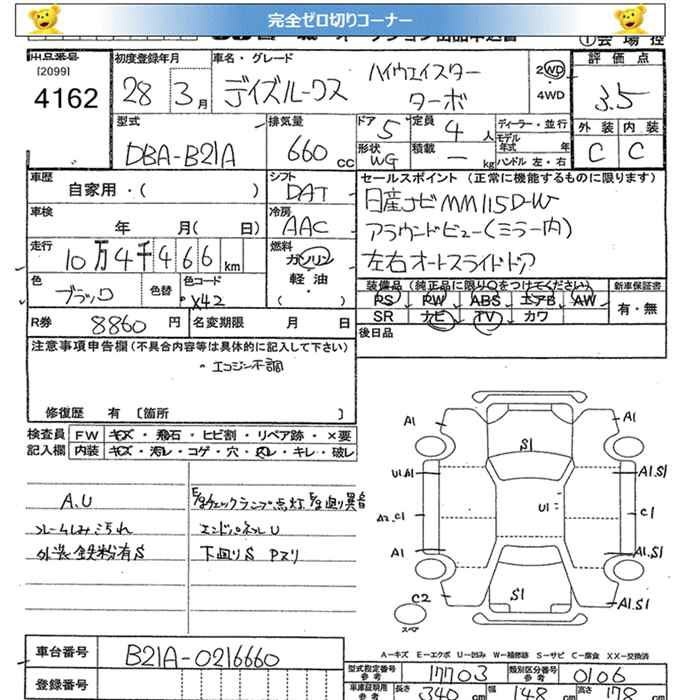 完全ゼロ切りコーナー
出品番号
[2099]
4162
初度登録年月
28年 3月
車名・グレード
デイズルークス
ハイウェイスター
ターボ
2WD
4WD
評価点
3.5
外装 内装
C C
型式
DBA-B21A
排気量
660 cc
ドア 5
定員 4 人
形状 WG
積載 — kg
ディーラー・並行
モデル年式 年
ハンドル 左・右
車歴
自家用・( )
シフト
DAT
セールスポイント (正常に機能するものに限ります)
日産ナビ MM115D-W
アラウンドビュー(ミラー内)
左右オートスライドドア
車検
年 月( 日)
冷房
AAC
走行
10万4千466km
燃料
ガソリン
軽・油
( )
色
ブラック
色替
色コード
X42
装備品 (純正品に限り○をつけてください)
PS PW ABS エアB AW
SR ナビ TV カワ
新車保証書
有・無
R券 8860 円
名変期限 月 日
後日品
注意事項申告欄 (不具合内容等は具体的に記入して下さい)
・エンジン不調
修復歴 有 [箇所 ]
検査員 FW キズ・飛石・ヒビ割・リペア跡・×要
記入欄 内装 キズ・汚レ・コゲ・穴・スレ・キレ・破レ
A.U
E/gチェックランプ点灯 E/g廻り異音
シートしみ汚れ
エンドパネルU
外装鉄粉有S
下廻りS Pスリ
A1
S1
A1
U1.A1
A1.S1
U1
A2.C1
C1
A1
A1.S1
C2
S1
A1.S1
スペア
A-キズ E-エクボ U-凹み W-補修跡 S-サビ C-腐食 XX-交換済
車台番号
B21A-0216660
型式指定番号
参考
17703
類別区分番号
参考
0106
登録番号
車庫証明用
参考
長さ 340 cm
幅 148 cm
高さ 178 cm